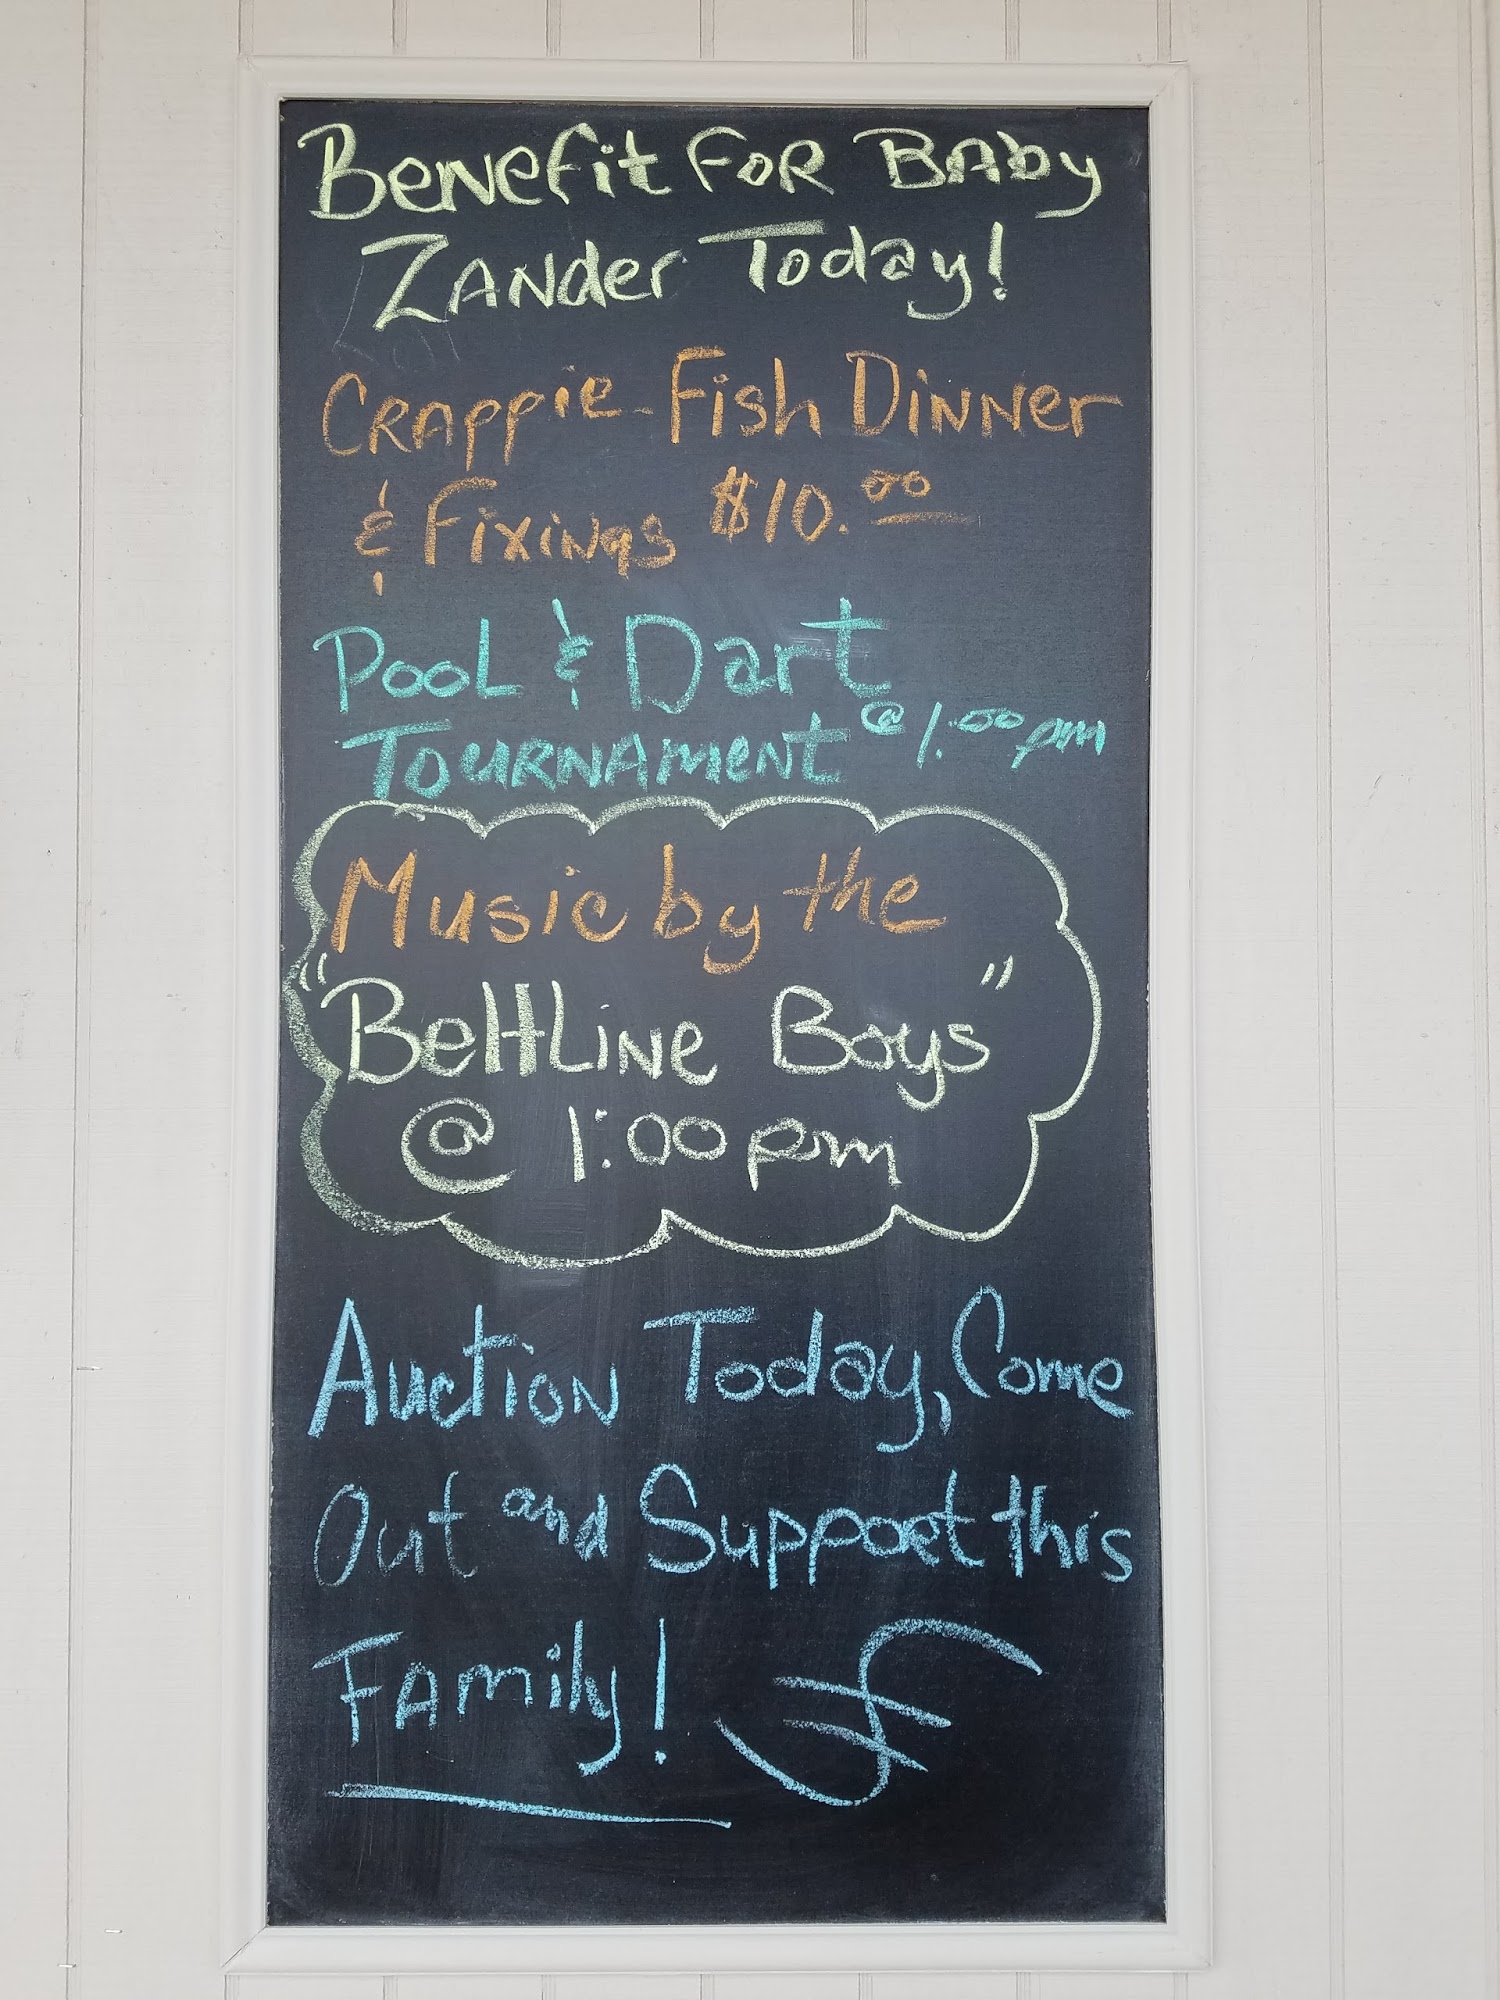 Benefit For Baby
Zander Today!
Crappie-Fish Dinner
& Fixings $10.00
Pool & Dart
Tournament @ 1:00 pm
Music by the
"Beltline Boys"
@ 1:00 pm
Auction Today, Come
Out and Support this
Family!